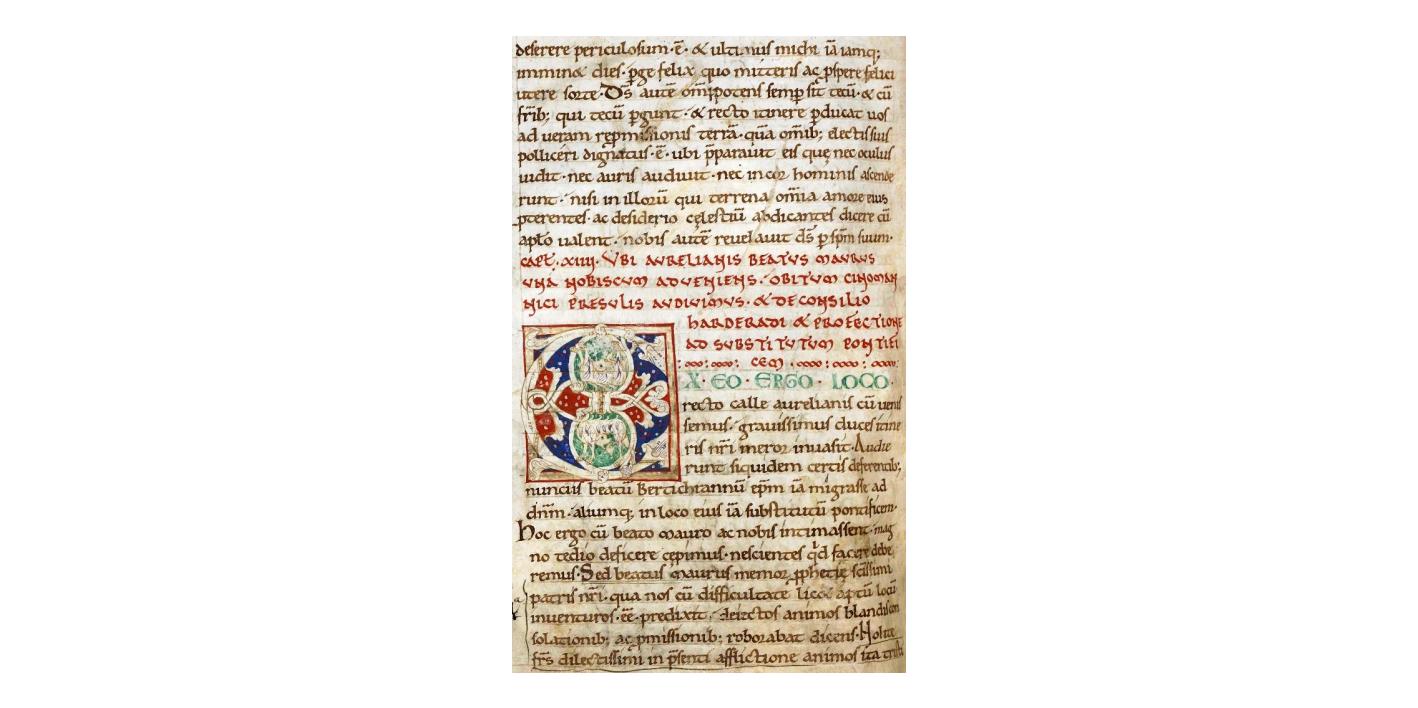 deserere periculosum·ē· & ultimus michi iā iamq;
immin& dies· ꝑge felix quo mitteris ac ꝓspere felici
utere sorte· Ds̄ autē om̄ipotens semꝑ sit tecū· & cū
fr̄ib; qui tecū ꝑgunt· & recto itinere ꝑducat uos
ad ueram reꝓmissionis terrā· quā om̄ib; electis suis
polliceri dignatus·ē· ubi p̄parauit eis quę nec oculus
uidit· nec auris audiuit· nec in cor hominis ascende
runt· nisi in illorū qui terrena om̄ia amore eius
ꝓterentes· ac desiderio cęlestiū abdicantes dicere cū
apl̄o ualent· nobis autē reuelauit ds̄ ꝑ sp̄m suum·
CAPT̄·XIIII· VBI AVRELIANIS BEATVS MAVRVS
VNA NOBISCVM ADVENIENS· OBITVM CINOMAN
NICI PRESVLIS AVDIVIMVS· & DE CONSILIO
HARDERADI & PROFECTIONE
AD SVBSTITVTVM PONTIFI
CEM
EX· EO· ERGO· LOCO·
recto calle aurelianis cū uenis
semus· grauissimus duces itine
ris nr̄i meror inuasit· Audie
runt siquidem certis deferentib;
nunciis beatū Bertichrannū ep̄m iā migrasse ad
dn̄m· aliumq; in loco eius iā substitutū pontificem·
Hoc ergo cū beato mauro ac nobis intimassent· mag
no tedio deficere cępimus· nescientes qd̄ facere debe
remus· Sed beatus maurus memor ꝓphetię sc̄issimi
patris nr̄i· qua nos cū difficultate lic& aptū locū
inuenturos·ēē· predixit· deiectos animos blandis con
solationib; ac ꝓmissionib; roborabat dicens· Nolite
fr̄s dilectissimi in p̄senti afflictione animos ita tristi